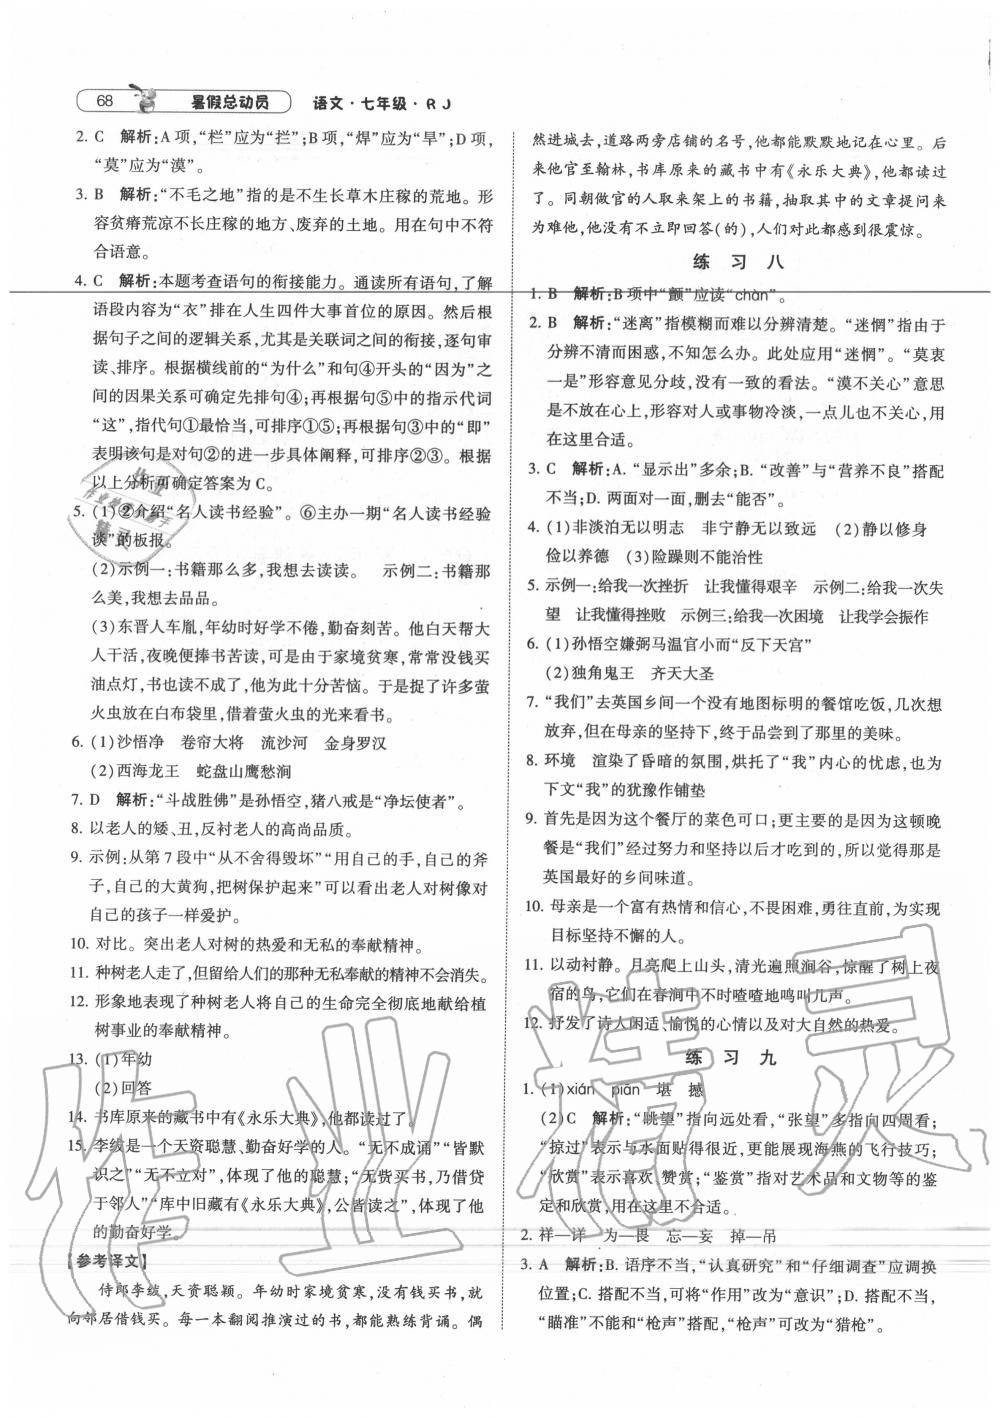 68
暑假总动员
语文·七年级·RJ
2. C　解析:A项,“栏”应为“拦”;B项,“焊”应为“旱”;D项,
“莫”应为“漠”。
3. B　解析:“不毛之地”指的是不生长草木庄稼的荒地。形
容贫瘠荒凉不长庄稼的地方、废弃的土地。用在句中不符
合语意。
4. C　解析:本题考查语句的衔接能力。通读所有语句,了解
语段内容为“衣”排在人生四件大事首位的原因。然后根
据句子之间的逻辑关系,尤其是关联词之间的衔接,逐句审
读、排序。根据横线前的“为什么”和句④开头的“因为”之
间的因果关系可确定先排句④;再根据句⑤中的指示代词
“这”,指代句①最恰当,可排序①⑤;再根据句③中的“即”
表明该句是对句②的进一步具体阐释,可排序②③。根据
以上分析可确定答案为C。
5. (1)②介绍“名人读书经验”。⑥主办一期“名人读书经验
谈”的板报。
(2)示例一:书籍那么多,我想去读读。　示例二:书籍那
么美,我想去品品。
(3)东晋人车胤,年幼时好学不倦,勤奋刻苦。他白天帮大
人干活,夜晚便捧书苦读,可是由于家境贫寒,常常没钱买
油点灯,书也读不成了,他为此十分苦恼。于是捉了许多萤
火虫放在白布袋里,借着萤火虫的光来看书。
6. (1)沙悟净　卷帘大将　流沙河　金身罗汉
(2)西海龙王　蛇盘山鹰愁涧
7. D　解析:“斗战胜佛”是孙悟空,猪八戒是“净坛使者”。
8. 以老人的矮、丑,反衬老人的高尚品质。
9. 示例:从第7段中“从不舍得毁坏”“用自己的手,自己的斧
子,自己的大黄狗,把树保护起来”可以看出老人对树像对
自己的孩子一样爱护。
10. 对比。突出老人对树的热爱和无私的奉献精神。
11. 种树老人走了,但留给人们的那种无私的奉献的精神不会消失。
12. 形象地表现了种树老人将自己的生命完全彻底地献给植
树事业的奉献精神。
13. (1)年幼
(2)回答
14. 书库原来的藏书中有《永乐大典》,他都读过了。
15. 李绂是一个天资聪慧、勤奋好学的人。“无不成诵”“皆默
识之”“无不立对”,体现了他的聪慧;“无赀买书,乃借贷
于邻人”“库中旧藏有《永乐大典》,公皆读之”,体现了他
的勤奋好学。
【参考译文】
侍郎李绂,天资聪颖。年幼时家境贫寒,没有钱买书,就
向邻居借钱买。每一本翻阅推演过的书,都能熟练背诵。偶
然进城去,道路两旁店铺的名号,他都能默默地记在心里。后
来他官至翰林,书库原来的藏书中有《永乐大典》,他都读过
了。同朝做官的人取来架上的书籍,抽取其中的文章提问来
为难他,他没有不立即回答(的),人们对此都感到很震惊。
练习八
1. B　解析:B项中“颤”应读“chàn”。
2. B　解析:“迷离”指模糊而难以分辨清楚。“迷惘”指由于
分辨不清而困惑,不知怎么办。此处应用“迷惘”。“莫衷
一是”形容意见分歧,没有一致的看法。“漠不关心”意思
是不放在心上,形容对人或事物冷淡,一点儿也不关心,用
在这里合适。
3. C　解析:A.“显示出”多余;B.“改善”与“营养不良”搭配
不当;D. 两面对一面,删去“能否”。
4. (1)非淡泊无以明志　非宁静无以致远　(2)静以修身
俭以养德　(3)险躁则不能治性
5. 示例一:给我一次挫折　让我懂得艰辛　示例二:给我一次失
望　让我懂得挫败　示例三:给我一次困境　让我学会振作
6. (1)孙悟空嫌弼马温官小而“反下天宫”
(2)独角鬼王　齐天大圣
7. “我们”去英国乡间一个没有地图标明的餐馆吃饭,几次想
放弃,但在母亲的坚持下,终于品尝到了那里的美味。
8. 环境　渲染了昏暗的氛围,烘托了“我”内心的忧虑,也为
下文“我”的犹豫作铺垫
9. 首先是因为这个餐厅的菜色可口;更主要的是因为这顿晚
餐是“我们”经过努力和坚持以后才吃到的,所以觉得那是
英国最好的乡间味道。
10. 母亲是一个富有热情和信心,不畏困难,勇往直前,为实现
目标坚持不懈的人。
11. 以动衬静。月亮爬上山头,清光遍照涧谷,惊醒了树上夜
宿的鸟,它们在春涧中不时喳喳地鸣叫几声。
12. 抒发了诗人闲适、愉悦的心情以及对大自然的热爱。
练习九
1. (1)xián　piān　堪　撼
(2)C　解析:“眺望”指向远处看,“张望”多指向四周看;
“掠过”表示与水面贴得很近,更能展现海燕的飞行技巧;
“欣赏”表示喜欢、赞赏;“鉴赏”指对艺术品和文物等的鉴
定和欣赏,用在这里不合适。
2. 祥—详　为—畏　忘—妄　掉—吊
3. A　解析:B. 语序不当,“认真研究”和“仔细调查”应调换
位置;C. 搭配不当,可将“作用”改为“意识”;D. 搭配不当,
“瞄准”不能和“枪声”搭配,“枪声”可改为“猎枪”。
作业精灵